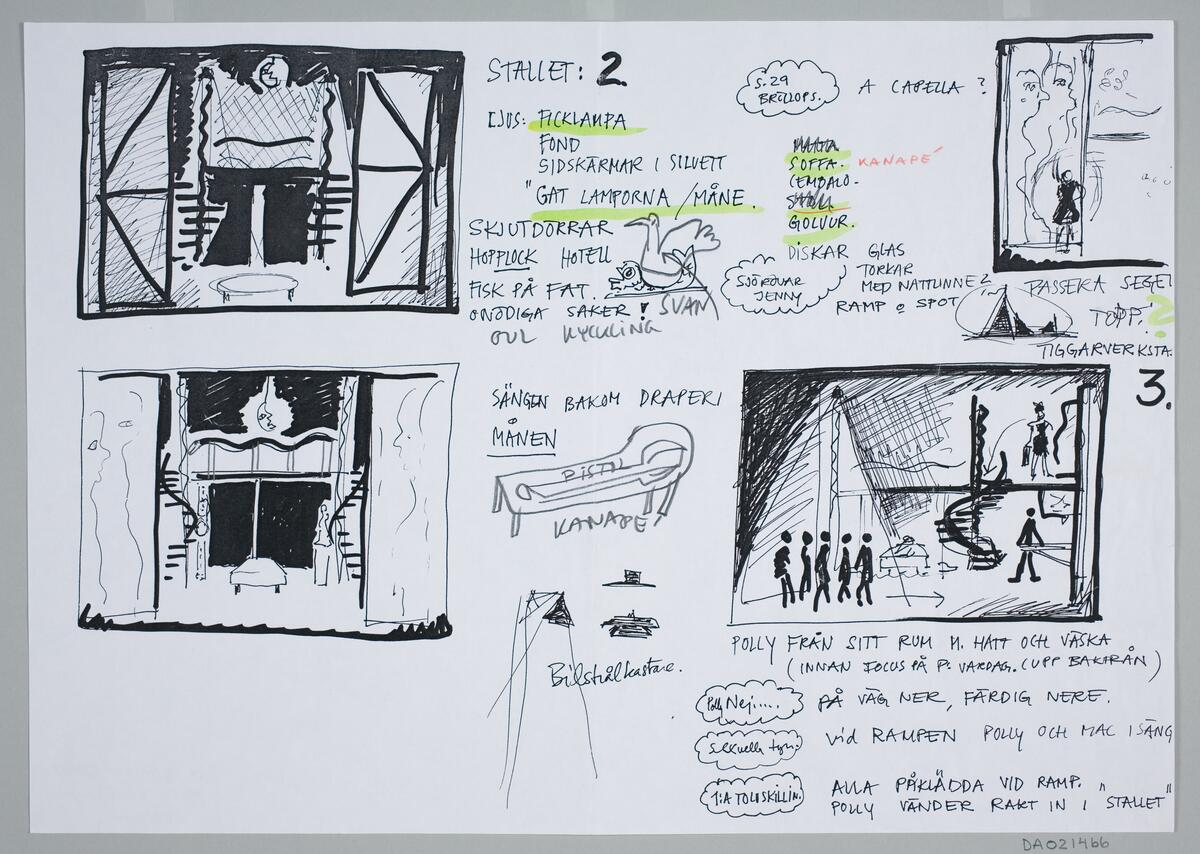 STALLET: 2
LJUS: FICKLAMPA
FOND
SIDSKÄRMAR I SILUETT
"GAT LAMPORNA / MÅNE.
SKJUTDÖRRAR
HOPPLOCK HOTELL
FISK PÅ FAT.
ONÖDIGA SAKER! SVAN
GUL KYCKLING
S. 29
BRÖLLOPS.
A CAPELLA?
MATTA
SOFFA. KANAPÉ
CEMBALO.
GOLVUR.
DISKAR GLAS
TORKAR
MED NATTLINNE?
RAMP o SPOT
SJÖRÖVAR
JENNY
PASSERA SEGEL
TOPP! ?
TIGGARVERKSTA.
SÄNGEN BAKOM DRAPERI
MÅNEN
PISTOL
KANAPÉ
Bilstrålkastare.
3.
POLLY FRÅN SITT RUM M. HATT OCH VÄSKA
(INNAN FOCUS PÅ P: VARDAG. (UPP BAKIFRÅN)
Polly Nej....
PÅ VÄG NER, FÄRDIG NERE.
Sexuella tyn.
Vid RAMPEN POLLY OCH MAC I SÄNG
1:A TOLVSKILLIN.
ALLA PÅKLÄDDA VID RAMP.
POLLY VÄNDER RAKT IN I "STALLET"
DA021466